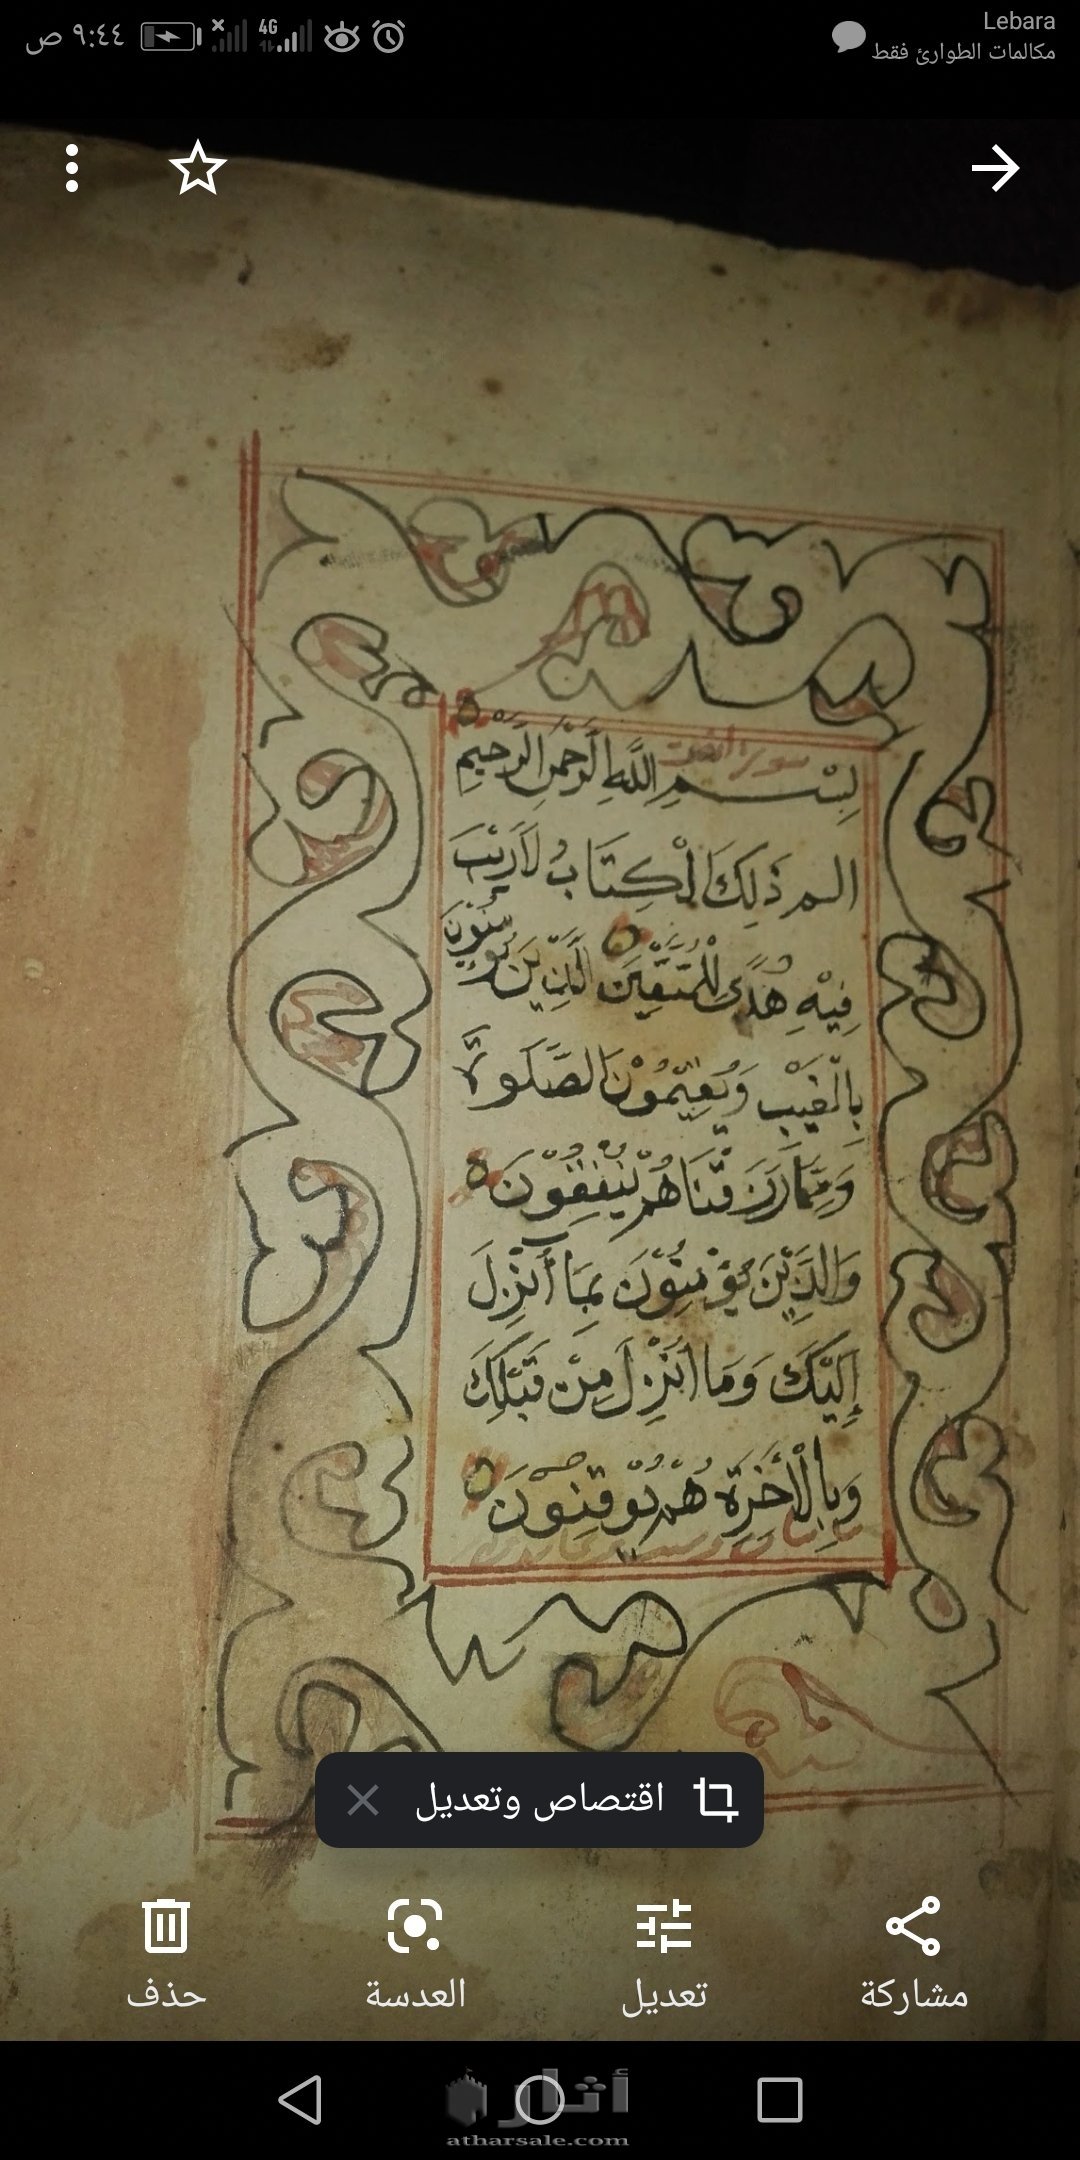 Lebara
مكالمات الطوارئ فقط
4G
٩:٤٤ ص
بِسْمِ اللَّهِ الرَّحْمٰنِ الرَّحِيْمِ
الم ذَلِكَ الْكِتَابُ لَارَيْبَ
فِيْهِ هُدًى لِلْمُتَّقِيْنَ الَّذِيْنَ يُؤْمِنُوْنَ
بِالْغَيْبِ وَيُقِيْمُوْنَ الصَّلَوٰةَ
وَمِمَّا رَزَقْنَاهُمْ يُنْفِقُوْنَ
وَالَّذِيْنَ يُؤْمِنُوْنَ بِمَا أُنْزِلَ
إِلَيْكَ وَمَا أُنْزِلَ مِنْ قَبْلِكَ
وَبِالْأَخِرَةِ هُمْ يُوْقِنُوْنَ
اقتصاص وتعديل
مشاركة
تعديل
العدسة
حذف
أثار
atharsale.com